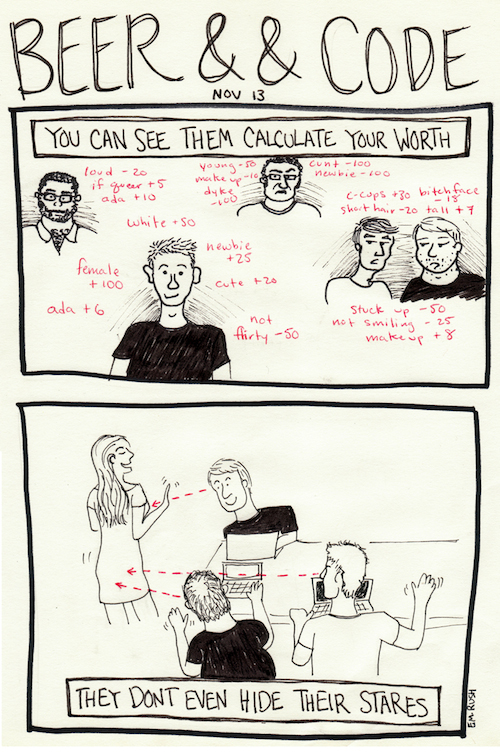 BEER && CODE
NOV 13
YOU CAN SEE THEM CALCULATE YOUR WORTH
loud - 20
if queer +5
ada +10
young -50
makeup -10
dyke
-100
cunt -100
newbie -100
c-cups +30
short hair -20
bitchface
-15
tall +7
white +50
female
+100
ada +6
newbie
+25
cute +20
not
flirty -50
stuck up -50
not smiling - 25
makeup +8
THEY DONT EVEN HIDE THEIR STARES
EM RUSH